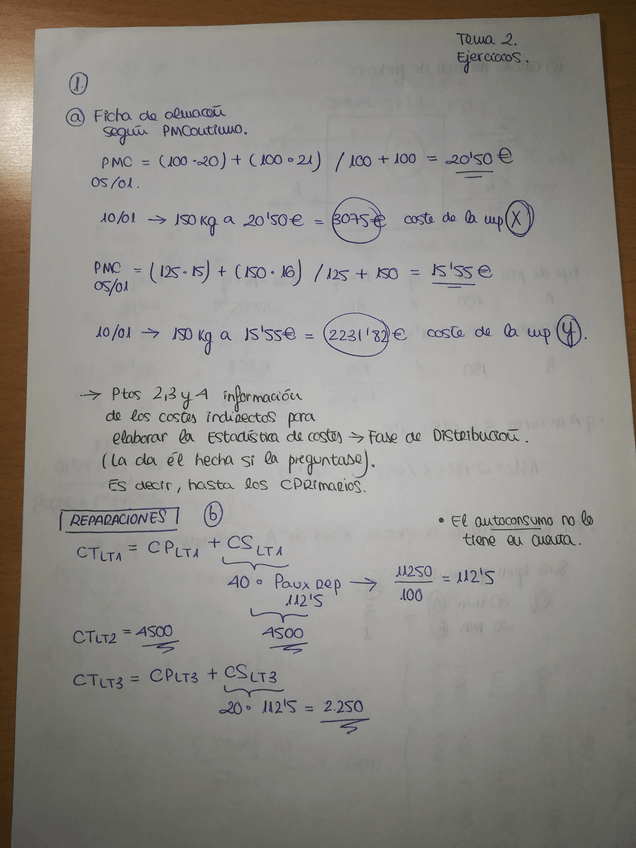 Tema 2.
Ejercicios.
1.
a Ficha de almacén
según PMContinuo.
PMC = (100·20) + (100·21) / 100 + 100 = 20'50 €
05/01.
10/01 → 150 Kg a 20'50 € = 3075 € coste de la mp X
PMC = (125·15) + (150·16) / 125 + 150 = 15'55 €
05/01
10/01 → 150 kg a 15'55 € = 2231'82 € coste de la mp Y.
→ Ptos 2,3 y 4 información
de los costes indirectos para
elaborar la Estadística de costes → Fase de Distribución.
(La da él hecha si la preguntase).
Es decir, hasta los CPRimarios.
REPARACIONES b
• El autoconsumo no lo
tiene en cuenta.
CTLT1 = CPLT1 + CSLT1
40 · Paux Dep → 11250/100 = 112'5
112'5
CTLT2 = 4500 4500
CTLT3 = CPLT3 + CSLT3
20 · 112'5 = 2.250